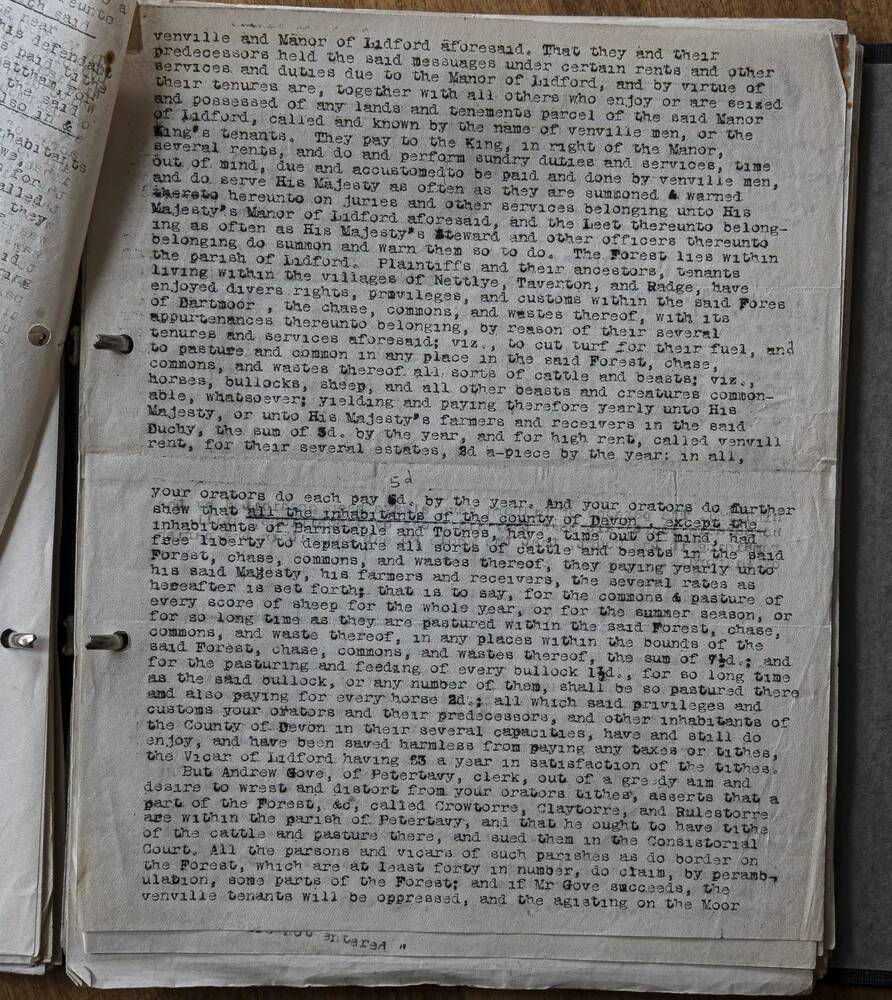 venville and Manor of Lidford aforesaid. That they and their
predecessors held the said messuages under certain rents and other
services and duties due to the Manor of Lidford, and by virtue of
their tenures are, together with all others who enjoy or are seized
and possessed of any lands and tenements parcel of the said Manor
of Lidford, called and known by the name of venville men, or the
King's tenants. They pay to the King, in right of the Manor,
several rents, and do and perform sundry duties and services, time
out of mind, due and accustomedto be paid and done by venville men,
and do serve His Majesty as often as they are summoned & warned
thereto hereunto on juries and other services belonging unto His
Majesty's Manor of Lidford aforesaid, and the Leet thereunto belong-
ing as often as His Majesty's Steward and other officers thereunto
belonging do summon and warn them so to do. The Forest lies within
the parish of Lidford. Plaintiffs and their ancestors, tenants
living within the villages of Nettlye, Taverton, and Radge, have
enjoyed divers rights, privileges, and customs within the said Fores
of Dartmoor , the chase, commons, and wastes thereof, with its
appurtenances thereunto belonging, by reason of their several
tenures and services aforesaid; viz., to cut turf for their fuel, and
to pasture and common in any place in the said Forest, chase,
commons, and wastes thereof all sorts of cattle and beasts; viz.,
horses, bullocks, sheep, and all other beasts and creatures common-
able, whatsoever; yielding and paying therefore yearly unto His
Majesty, or unto His Majesty's farmers and receivers in the said
Duchy, the sum of 3d. by the year, and for high rent, called venvill
rent, for their several estates, 2d a-piece by the year: in all,
5d
your orators do each pay d. by the year. And your orators do further
shew that all the inhabitants of the county of Devon , except the
inhabitants of Barnstaple and Totnes, have, time out of mind, had
free liberty to depasture all sorts of cattle and beasts in the said
Forest, chase, commons, and wastes thereof, they paying yearly unto
his said Majesty, his farmers and receivers, the several rates as
hereafter is set forth; that is to say, for the commons & pasture of
every score of sheep for the whole year, or for the summer season, or
for so long time as they are pastured within the said Forest, chase,
commons, and waste thereof, in any places within the bounds of the
said Forest, chase, commons, and wastes thereof, the sum of 7½d.; and
for the pasturing and feeding of every bullock 1½d., for so long time
as the said bullock, or any number of them, shall be so pastured there
and also paying for every horse 2d.; all which said privileges and
customs your orators and their predecessors, and other inhabitants of
the County of Devon in their several capacities, have and still do
enjoy, and have been saved harmless from paying any taxes or tithes,
the Vicar of Lidford having £3 a year in satisfaction of the tithes.
But Andrew Gove, of Petertavy, clerk, out of a greedy aim and
desire to wrest and distort from your orators tithes, asserts that a
part of the Forest, &c, called Crowtorre, Claytorre, and Rulestorre
are within the parish of Petertavy, and that he ought to have tithe
of the cattle and pasture there, and sued them in the Consistorial
Court. All the parsons and vicars of such parishes as do border on
the Forest, which are at least forty in number, do claim, by peramb-
ulation, some parts of the Forest; and if Mr Gove succeeds, the
venville tenants will be oppressed, and the agisting on the Moor
not entered "